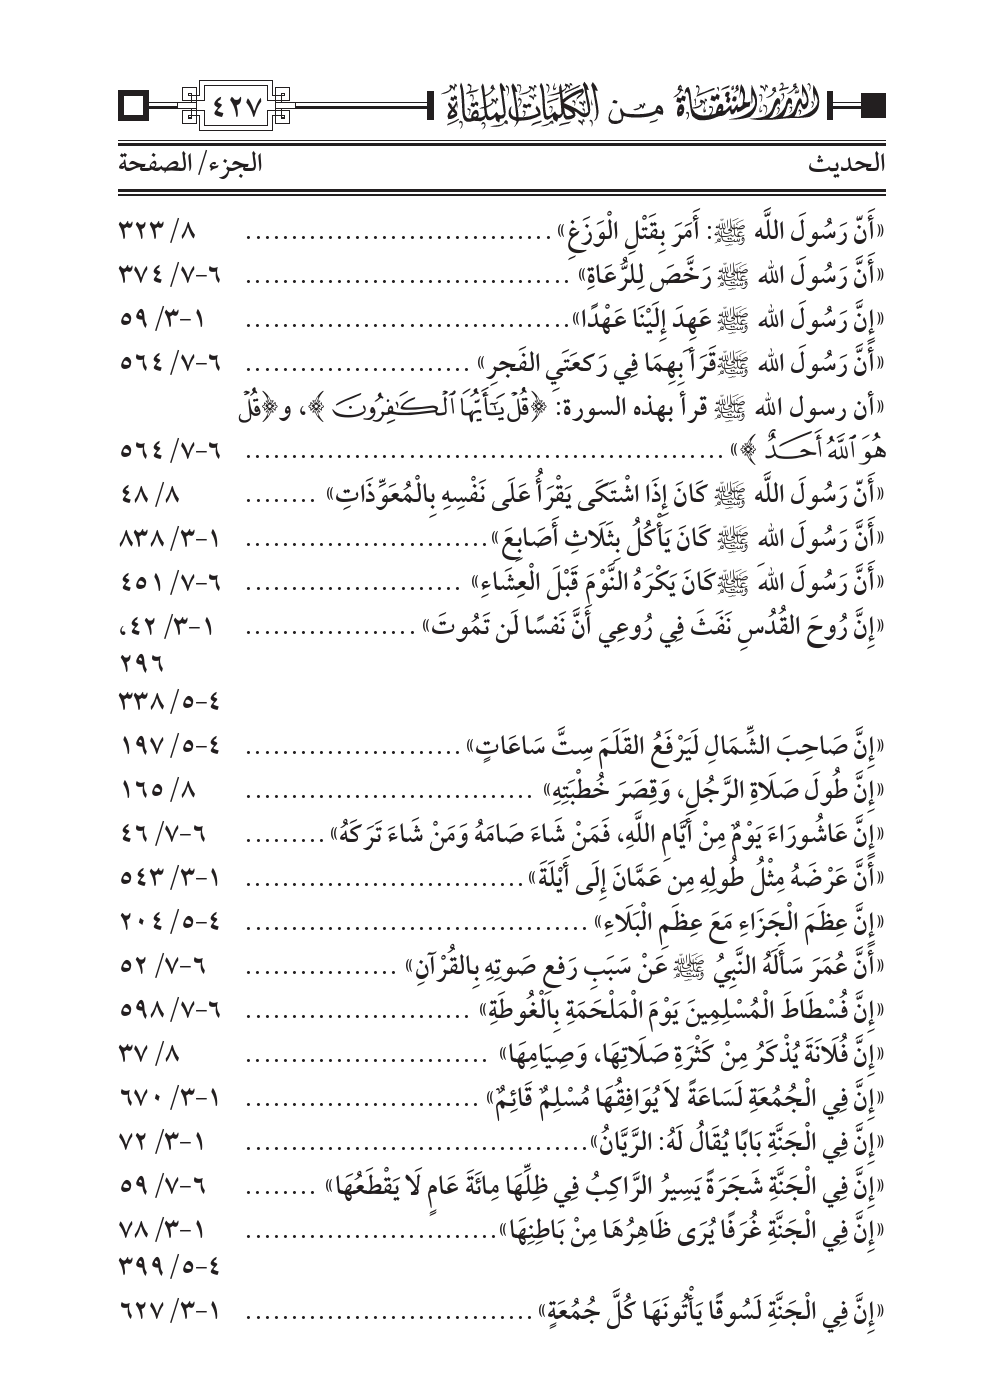 الدرر المنتقاة من الكلمات الملقاة ٤٢٧
الحديث الجزء/ الصفحة
«أَنّ رَسُولَ اللَّه ﷺ: أَمَرَ بِقَتْلِ الْوَزَغِ» ٨/ ٣٢٣
«أَنَّ رَسُولَ الله ﷺ رَخَّصَ لِلرُّعَاةِ» ٦-٧/ ٣٧٤
«إِنَّ رَسُولَ الله ﷺ عَهِدَ إِلَيْنَا عَهْدًا» ١-٣/ ٥٩
«أَنَّ رَسُولَ الله ﷺ قَرَأَ بِهِمَا فِي رَكعَتَيِ الفَجرِ» ٦-٧/ ٥٦٤
«أن رسول الله ﷺ قرأ بهذه السورة: ﴿قُلۡ يَٰٓأَيُّهَا ٱلۡكَٰفِرُونَ﴾، و﴿قُلۡ
هُوَ ٱللَّهُ أَحَدٌ﴾» ٦-٧/ ٥٦٤
«أَنّ رَسُولَ اللَّه ﷺ كَانَ إِذَا اشْتَكَى يَقْرَأُ عَلَى نَفْسِهِ بِالْمُعَوِّذَاتِ» ٨/ ٤٨
«أَنَّ رَسُولَ الله ﷺ كَانَ يَأْكُلُ بِثَلَاثِ أَصَابِعَ» ١-٣/ ٨٣٨
«أَنَّ رَسُولَ اللهَ ﷺ كَانَ يَكْرَهُ النَّوْمَ قَبْلَ الْعِشَاءِ» ٦-٧/ ٤٥١
«إِنَّ رُوحَ القُدُسِ نَفَثَ فِي رُوعِي أَنَّ نَفسًا لَن تَمُوتَ» ١-٣/ ٤٢،
٢٩٦
٤-٥/ ٣٣٨
«إِنَّ صَاحِبَ الشِّمَالِ لَيَرْفَعُ القَلَمَ سِتَّ سَاعَاتٍ» ٤-٥/ ١٩٧
«إِنَّ طُولَ صَلَاةِ الرَّجُلِ، وَقِصَرَ خُطْبَتِهِ» ٨/ ١٦٥
«إِنَّ عَاشُورَاءَ يَوْمٌ مِنْ أَيَّامِ اللَّهِ، فَمَنْ شَاءَ صَامَهُ وَمَنْ شَاءَ تَرَكَهُ» ٦-٧/ ٤٦
«أَنَّ عَرْضَهُ مِثْلُ طُولِهِ مِن عَمَّانَ إِلَى أَيْلَةَ» ١-٣/ ٥٤٣
«إِنَّ عِظَمَ الْجَزَاءِ مَعَ عِظَمِ الْبَلَاءِ» ٤-٥/ ٢٠٤
«أَنَّ عُمَرَ سَأَلَهُ النَّبِيُ ﷺ عَنْ سَبَبِ رَفعِ صَوتِهِ بِالقُرْآنِ» ٦-٧/ ٥٢
«إِنَّ فُسْطَاطَ الْمُسْلِمِينَ يَوْمَ الْمَلْحَمَةِ بِالْغُوطَةِ» ٦-٧/ ٥٩٨
«إِنَّ فُلَانَةَ يُذْكَرُ مِنْ كَثْرَةِ صَلَاتِهَا، وَصِيَامِهَا» ٨/ ٣٧
«إِنَّ فِي الْجُمُعَةِ لَسَاعَةً لاَ يُوَافِقُهَا مُسْلِمٌ قَائِمٌ» ١-٣/ ٦٧٠
«إِنَّ فِي الْجَنَّةِ بَابًا يُقَالُ لَهُ: الرَّيَّانُ» ١-٣/ ٧٢
«إِنَّ فِي الْجَنَّةِ شَجَرَةً يَسِيرُ الرَّاكِبُ فِي ظِلِّهَا مِائَةَ عَامٍ لَا يَقْطَعُهَا» ٦-٧/ ٥٩
«إِنَّ فِي الْجَنَّةِ غُرَفًا يُرَى ظَاهِرُهَا مِنْ بَاطِنِهَا» ١-٣/ ٧٨
٤-٥/ ٣٩٩
«إِنَّ فِي الْجَنَّةِ لَسُوقًا يَأْتُونَهَا كُلَّ جُمُعَةٍ» ١-٣/ ٦٢٧